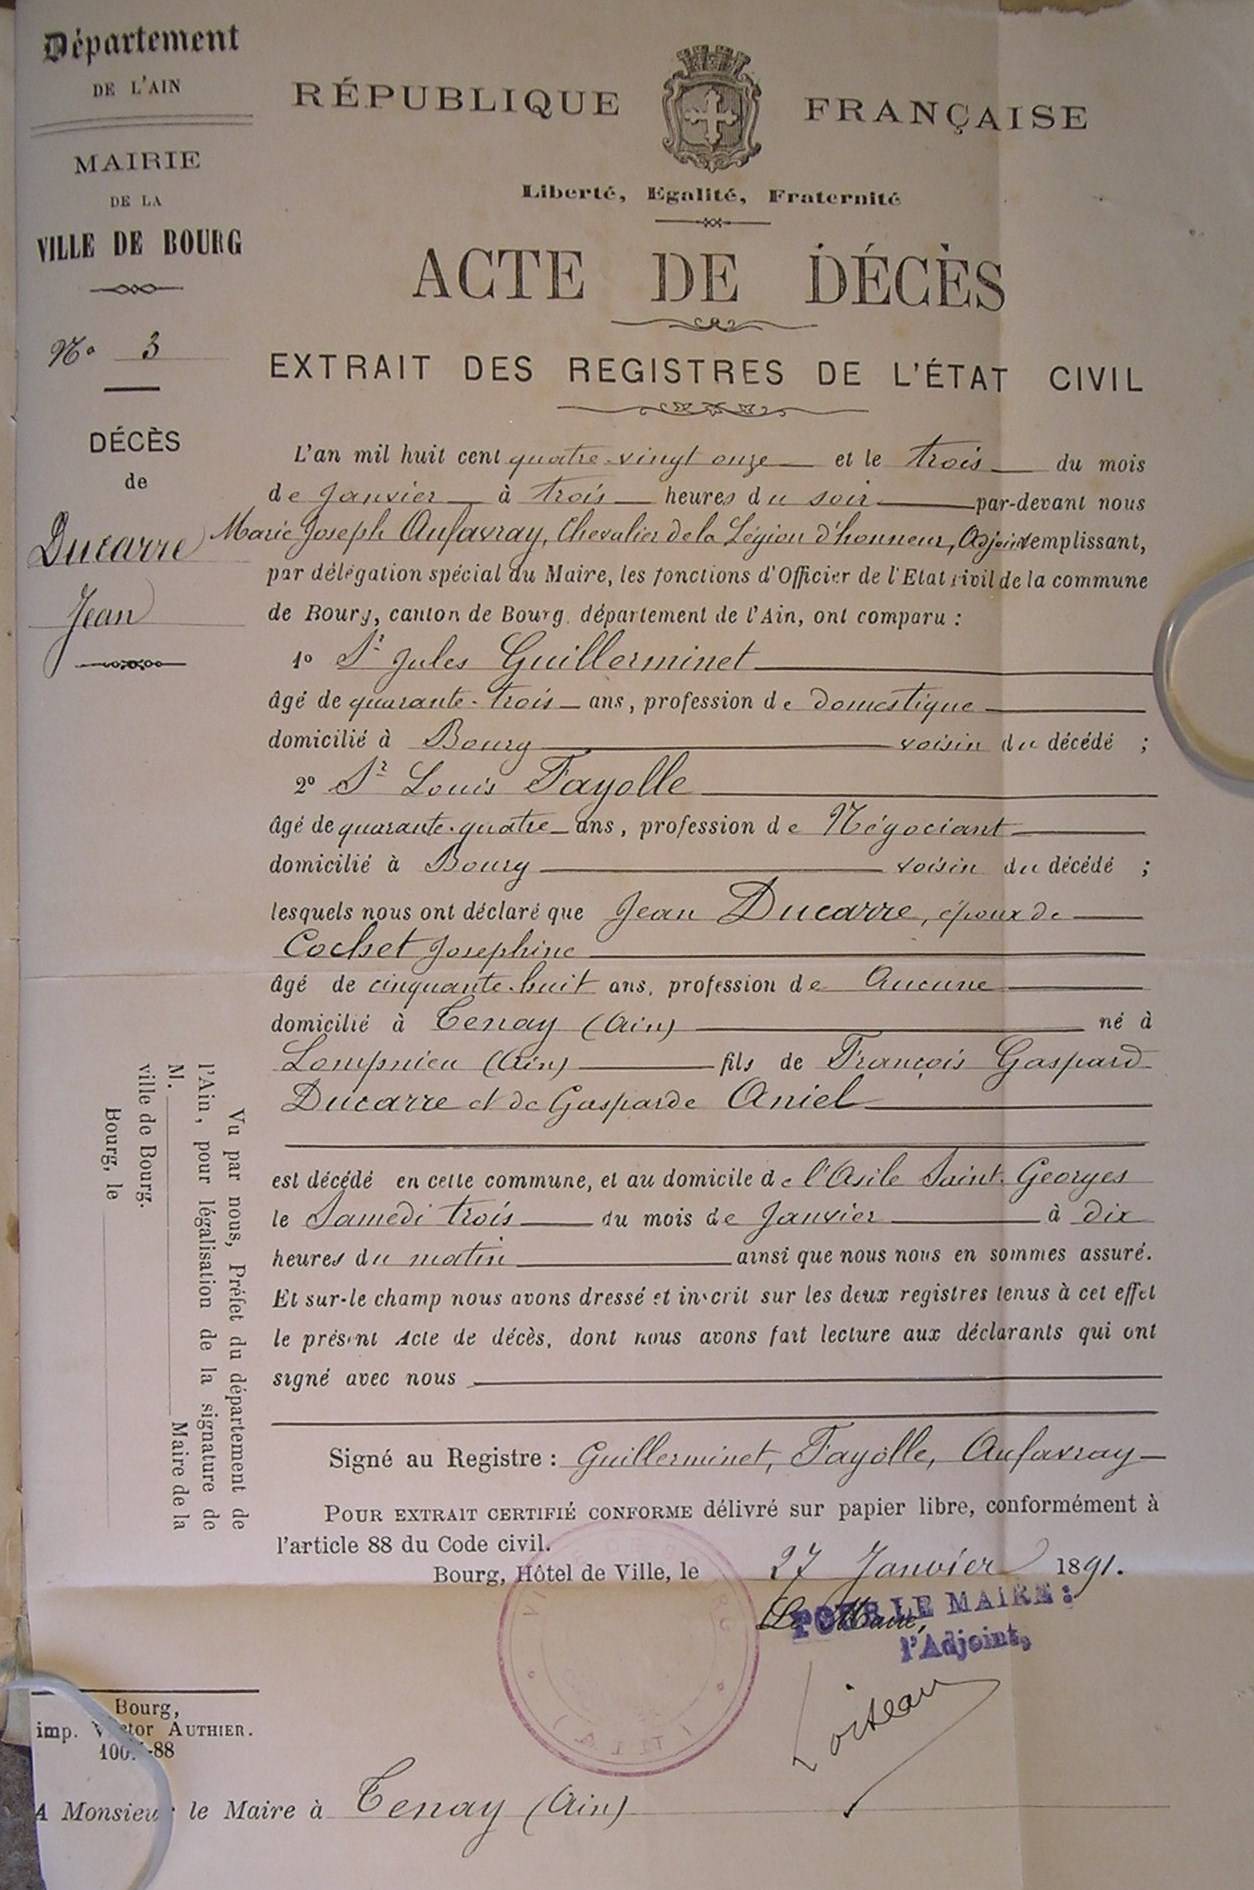 Département
DE L'AIN
MAIRIE
DE LA
VILLE DE BOURG
No 3
DÉCÈS
de
Ducarre
Jean
RÉPUBLIQUE FRANÇAISE
Liberté, Egalité, Fraternité
ACTE DE DÉCÈS
EXTRAIT DES REGISTRES DE L'ÉTAT CIVIL
L'an mil huit cent quatre-vingt onze et le trois du mois
de Janvier à trois heures du soir par-devant nous
Marie Joseph Aufavray, Chevalier de la Légion d'honneur, Adjoint remplissant,
par délégation spécial du Maire, les fonctions d'Officier de l'Etat civil de la commune
de Bourg, canton de Bourg, département de l'Ain, ont comparu :
1o Sr Jules Guillerminet
âgé de quarante-trois ans, profession de domestique
domicilié à Bourg voisin du décédé ;
2o Sr Louis Fayolle
âgé de quarante-quatre ans, profession de Négociant
domicilié à Bourg voisin du décédé ;
lesquels nous ont déclaré que Jean Ducarre, époux de
Cochet Josephine
âgé de cinquante-huit ans, profession de Aucune
domicilié à Tenay (Ain) né à
Lompnieu (Ain) fils de François Gaspard
Ducarre et de Gasparde Aniel
est décédé en cette commune, et au domicile de l'Asile Saint-Georges
le Samedi trois du mois de Janvier à dix
heures du matin ainsi que nous nous en sommes assuré.
Et sur-le champ nous avons dressé et inscrit sur les deux registres tenus à cet effet
le présent Acte de décès, dont nous avons fait lecture aux déclarants qui ont
signé avec nous
Signé au Registre : Guillerminet, Fayolle, Aufavray
POUR EXTRAIT CERTIFIÉ CONFORME délivré sur papier libre, conformément à
l'article 88 du Code civil.
Bourg, Hôtel de Ville, le 27 Janvier 1891.
Le Maire,
POUR LE MAIRE :
l'Adjoint,
Loiseau
Vu par nous, Préfet du département de
l'Ain, pour légalisation de la signature de
M. Maire de la
ville de Bourg.
Bourg, le
Bourg,
imp. Victor AUTHIER.
A Monsieur le Maire à Tenay (Ain)